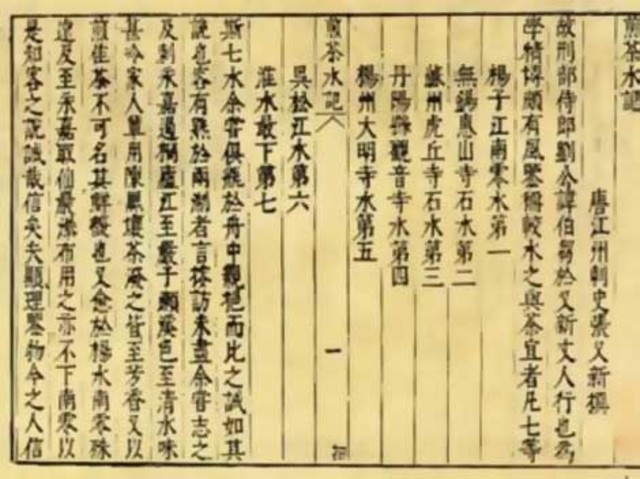 煎茶水記
唐江州刺史張又新撰
故刑部侍郎劉公諱伯芻於又新丈人行也為
學精博頗有風鑒稱較水之與茶宜者凡七等
楊子江南零水第一
無錫惠山寺石水第二
蘇州虎丘寺石水第三
丹陽縣觀音寺水第四
楊州大明寺水第五
煎茶水記
一
吳松江水第六
淮水最下第七
斯七水余嘗俱瓶於舟中親挹而比之誠如其
說也客有熟於兩浙者言搜訪未盡余嘗志之
及刺永嘉過桐廬江至嚴子瀨溪色至清水味
甚冷家人輩用陳黑壞茶潑之皆至芳香又以
煎佳茶不可名其鮮馥也又愈於楊水南零殊
遠及至永嘉取仙巖瀑布用之亦不下南零以
是知客之說誠哉信矣夫顯理鑒物今之人信